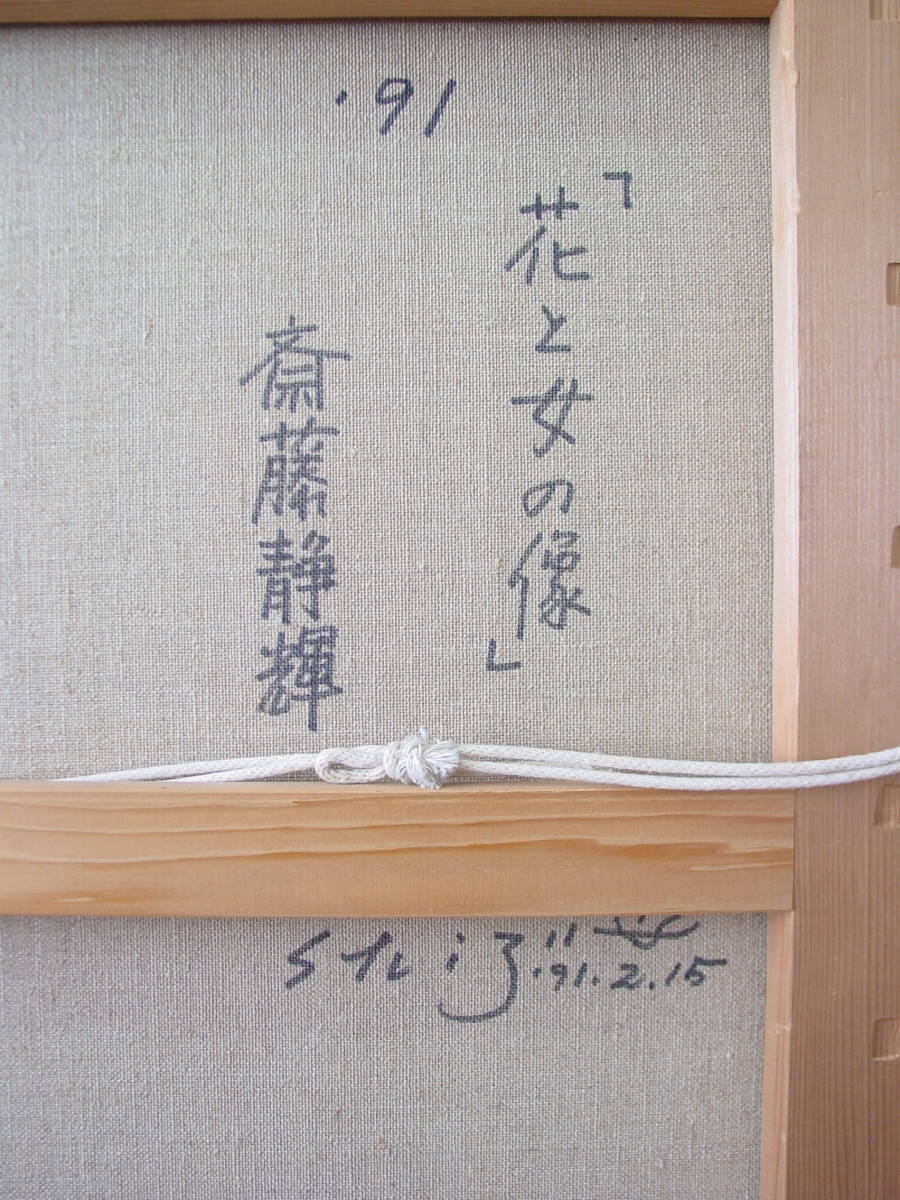 '91
「花と女の像」
斎藤静輝
'91.2.15